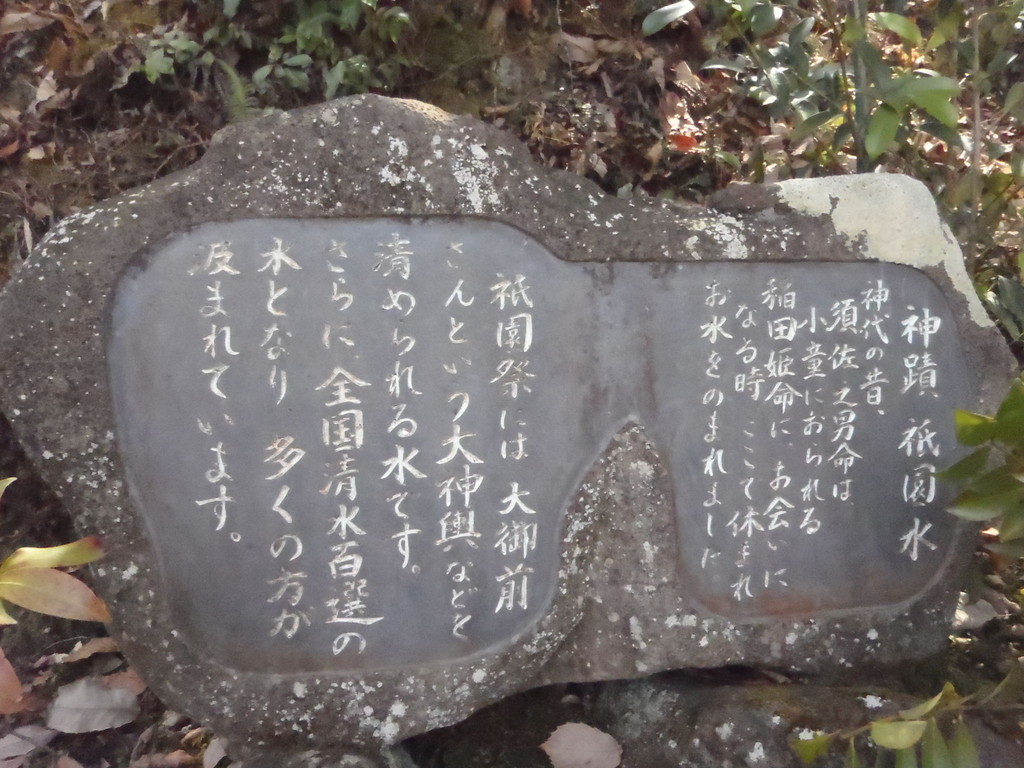 神蹟 祇園水
神代の昔、
須佐之男命は
小童におられる
稲田姫命に、お会いに
なる時 ここで休まれ
お水をのまれました
祇園祭には 大御前
さんという大神輿などと
清められる水です。
さらに全国清水百選の
水となり 多くの方が
汲まれています。